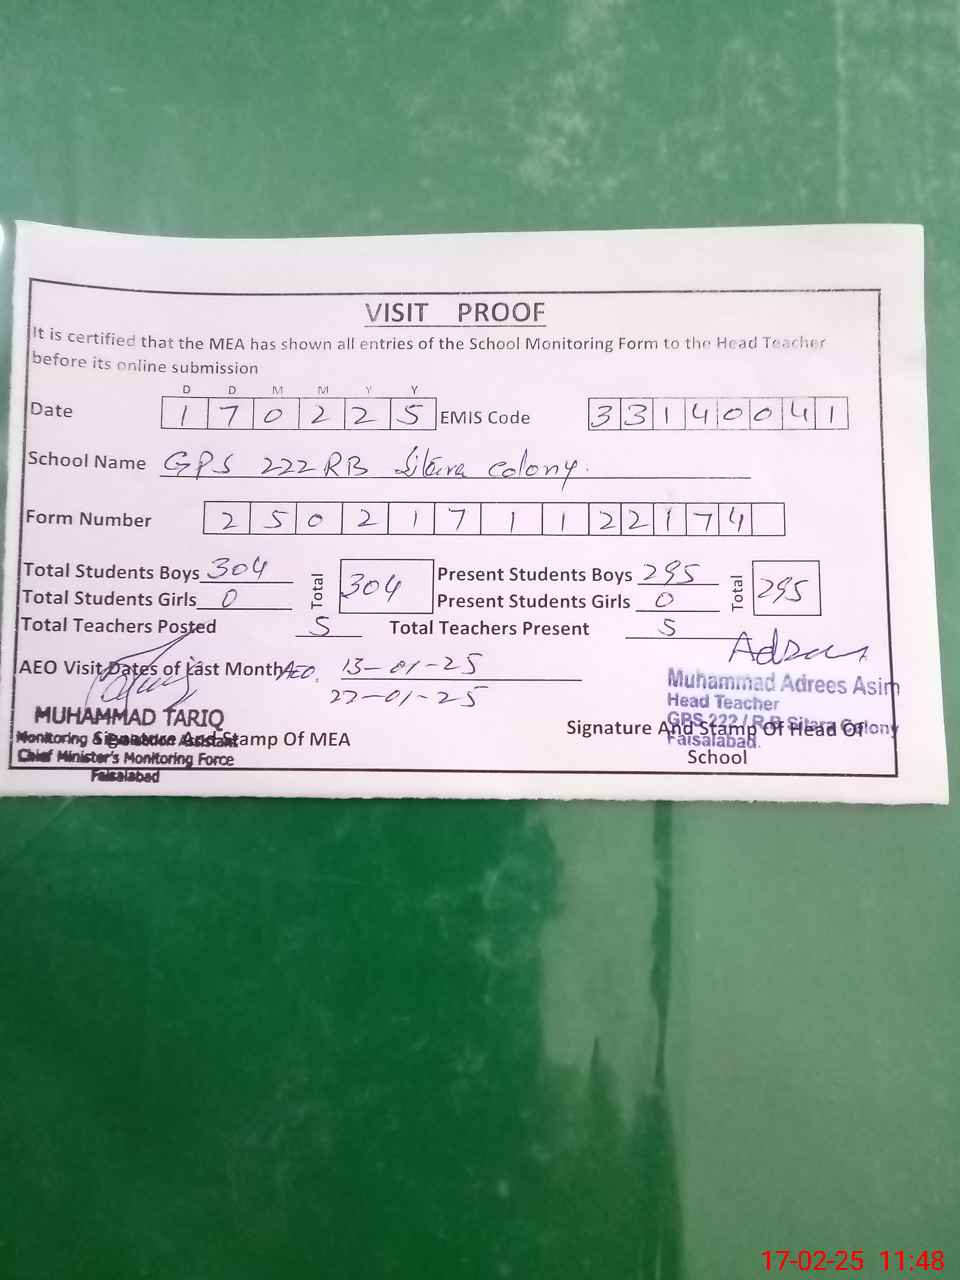 VISIT PROOF
It is certified that the MEA has shown all entries of the School Monitoring Form to the Head Teacher
before its online submission
D D M M Y Y
Date 1 7 0 2 2 5 EMIS Code 3 3 1 4 0 0 4 1
School Name GPS 222 RB Sitara colony.
Form Number 2 5 0 2 1 7 1 1 2 2 1 7 4
Total Students Boys 304 Total 304 Present Students Boys 295 Total 295
Total Students Girls 0 Present Students Girls 0
Total Teachers Posted 5 Total Teachers Present 5
AEO Visit Dates of Last Month AEO. 13-01-25
22-01-25
Muhammad Adrees Asim
Head Teacher
GPS 222 / R-B Sitara Colony
Faisalabad.
MUHAMMAD TARIQ
Monitoring & Evaluation Assistant
Chief Minister's Monitoring Force
Faisalabad
Signature And Stamp Of MEA
Signature And Stamp Of Head Of
School
17-02-25 11:48